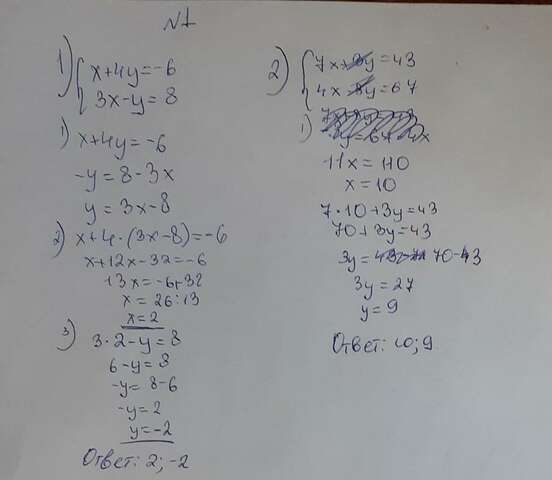 N1
1) { x+4y=-6
3x-y=8
1) x+4y=-6
-y=8-3x
y=3x-8
2) x+4·(3x-8)=-6
x+12x-32=-6
13x=-6+32
x=26:13
x=2
3) 3·2-y=8
6-y=8
-y=8-6
-y=2
y=-2
Ответ: 2; -2
2) { 7x+3y=43
4x-3y=67
1)
11x=110
x=10
7·10+3y=43
70+3y=43
3y= 70-43
3y=27
y=9
Ответ: 10; 9